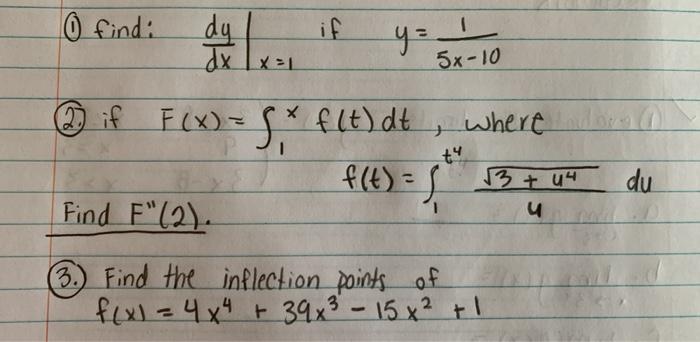 ① find: dy/dx | x=1 if y = 1/(5x-10)
② if F(x) = ∫₁ˣ f(t) dt , where
f(t) = ∫₁^(t⁴) √(3 + u⁴)/u du
Find F"(2).
③. Find the inflection points of
f(x) = 4x⁴ + 39x³ - 15x² + 1